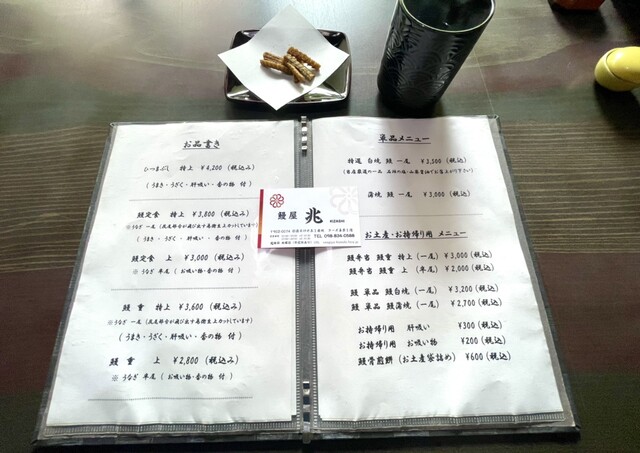 お品書き
ひつまぶし 特上 ¥4,200 (税込み)
(うまき・うざく・肝吸い・香の物 付)
鰻定食 特上 ¥3,800 (税込み)
(うまき・うざく・肝吸い・香の物 付)
鰻定食 上 ¥3,000 (税込み)
※ うなぎ 半尾 (お吸い物・香の物 付)
鰻 重 特上 ¥3,600 (税込み)
(うまき・うざく・肝吸い・香の物 付)
鰻 重 上 ¥2,800 (税込み)
※ うなぎ 半尾 (お吸い物・香の物 付)
鰻屋 兆 KIZASHI
TEL 098-834-0588
単品メニュー
特選 白焼 鰻 一尾 ¥3,500 (税込)
蒲焼 鰻 一尾 ¥3,000 (税込)
お土産・お持ち帰り用 メニュー
鰻弁当 鰻重 特上 (一尾) ¥3,000(税込)
鰻弁当 鰻重 上 (半尾) ¥2,000(税込)
鰻 単品 鰻白焼 (一尾) ¥3,200(税込)
鰻 単品 鰻蒲焼 (一尾) ¥2,700(税込)
お持帰り用 肝吸い ¥300(税込)
お持帰り用 お吸い物 ¥200(税込)
鰻骨煎餅 (お土産袋詰め) ¥600(税込)